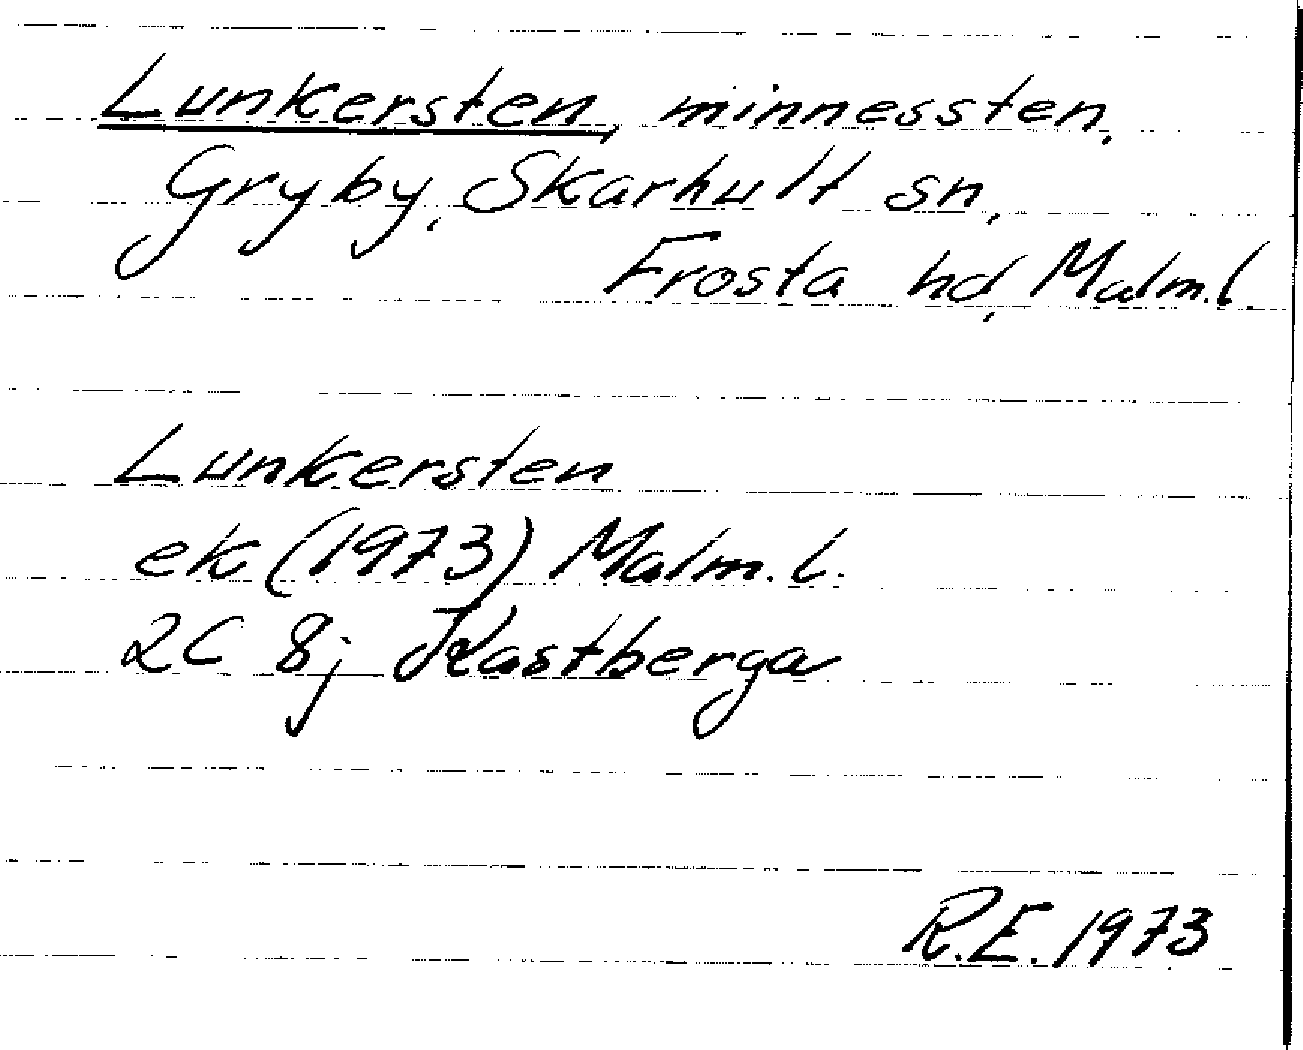 Lunkersten, minnessten,
Gryby, Skarhult sn,
Frosta hd, Malm.l.
Lunkersten
ek (1973) Malm. l.
2C 8j Kastberga
R.E. 1973